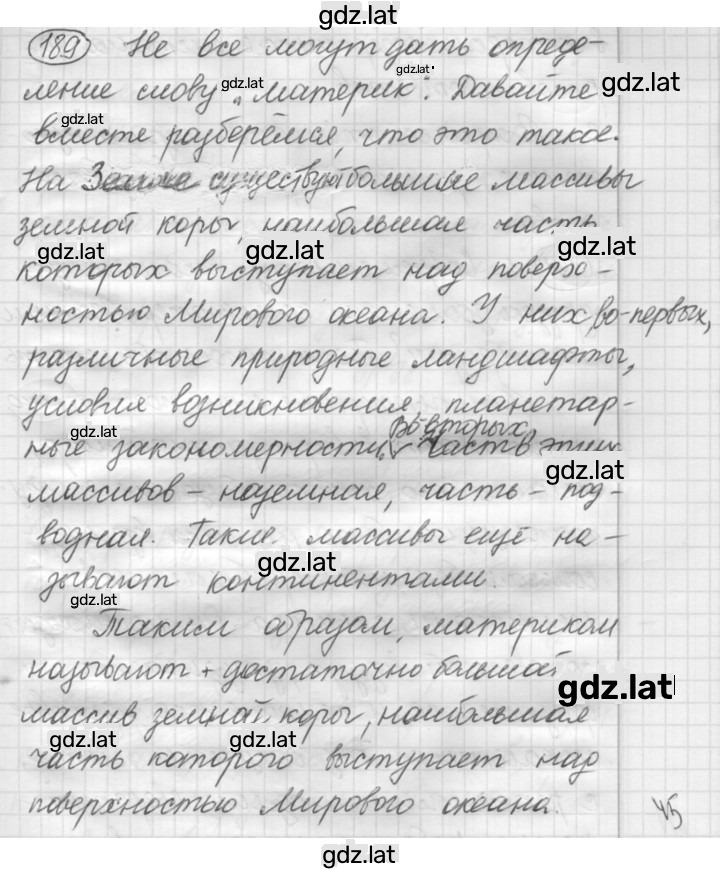 gdz.lat
189 Не все могут дать опреде-
gdz.lat gdz.lat gdz.lat
ление слову „материк“. Давайте
gdz.lat
вместе разберёмся, что это такое.
На Земле существуют большие массивы
земной коры, наибольшая часть
gdz.lat gdz.lat gdz.lat
которых выступает над поверх-
ностью Мирового океана. У них, во-первых,
различные природные ландшафты,
условия возникновения, планетар-
gdz.lat во-вторых,
ные закономерности. V часть этих
gdz.lat
массивов – наземная, часть – под-
водная. Такие массивы ещё на-
gdz.lat
зывают континентами.
gdz.lat
Таким образом, материком
называют + достаточно большой
gdz.lat
массив земной коры, наибольшая
gdz.lat gdz.lat
часть которого выступает над
поверхностью Мирового океана.
45
gdz.lat